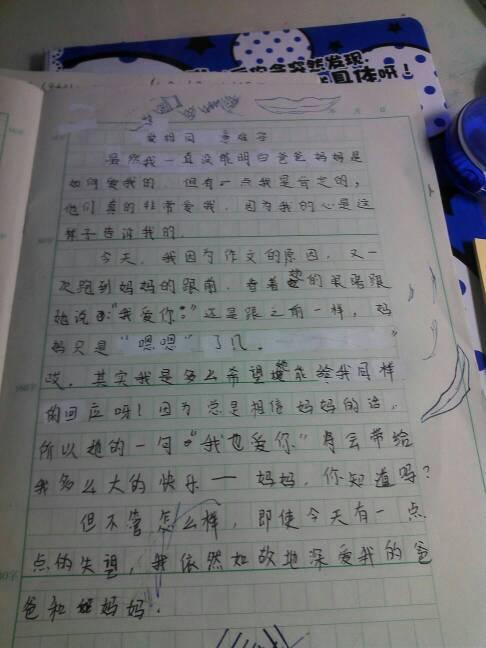 会突然发现.
具体呀！
爱相同 意难
虽然我一直没能明白爸爸妈妈是
如何爱我的，但有一点我是肯定的，
他们真的非常爱我，因为我的心是这
样子告诉我的.
今天，我因为作文的原因，又一
次跑到妈妈的跟前，看着她的眼睛跟
她说："我爱你."还是跟之前一样，妈
妈只是"嗯嗯"了几.
哎，其实我是多么希望她能给我同样
的回应呀！因为总是相信妈妈的话，
所以她的一句"我也爱你"将会带给
我多么大的快乐一妈妈，你知道吗？
但不管怎么样，即使今天有一点
点的失望，我依然如故地深爱我的爸
爸和妈妈.